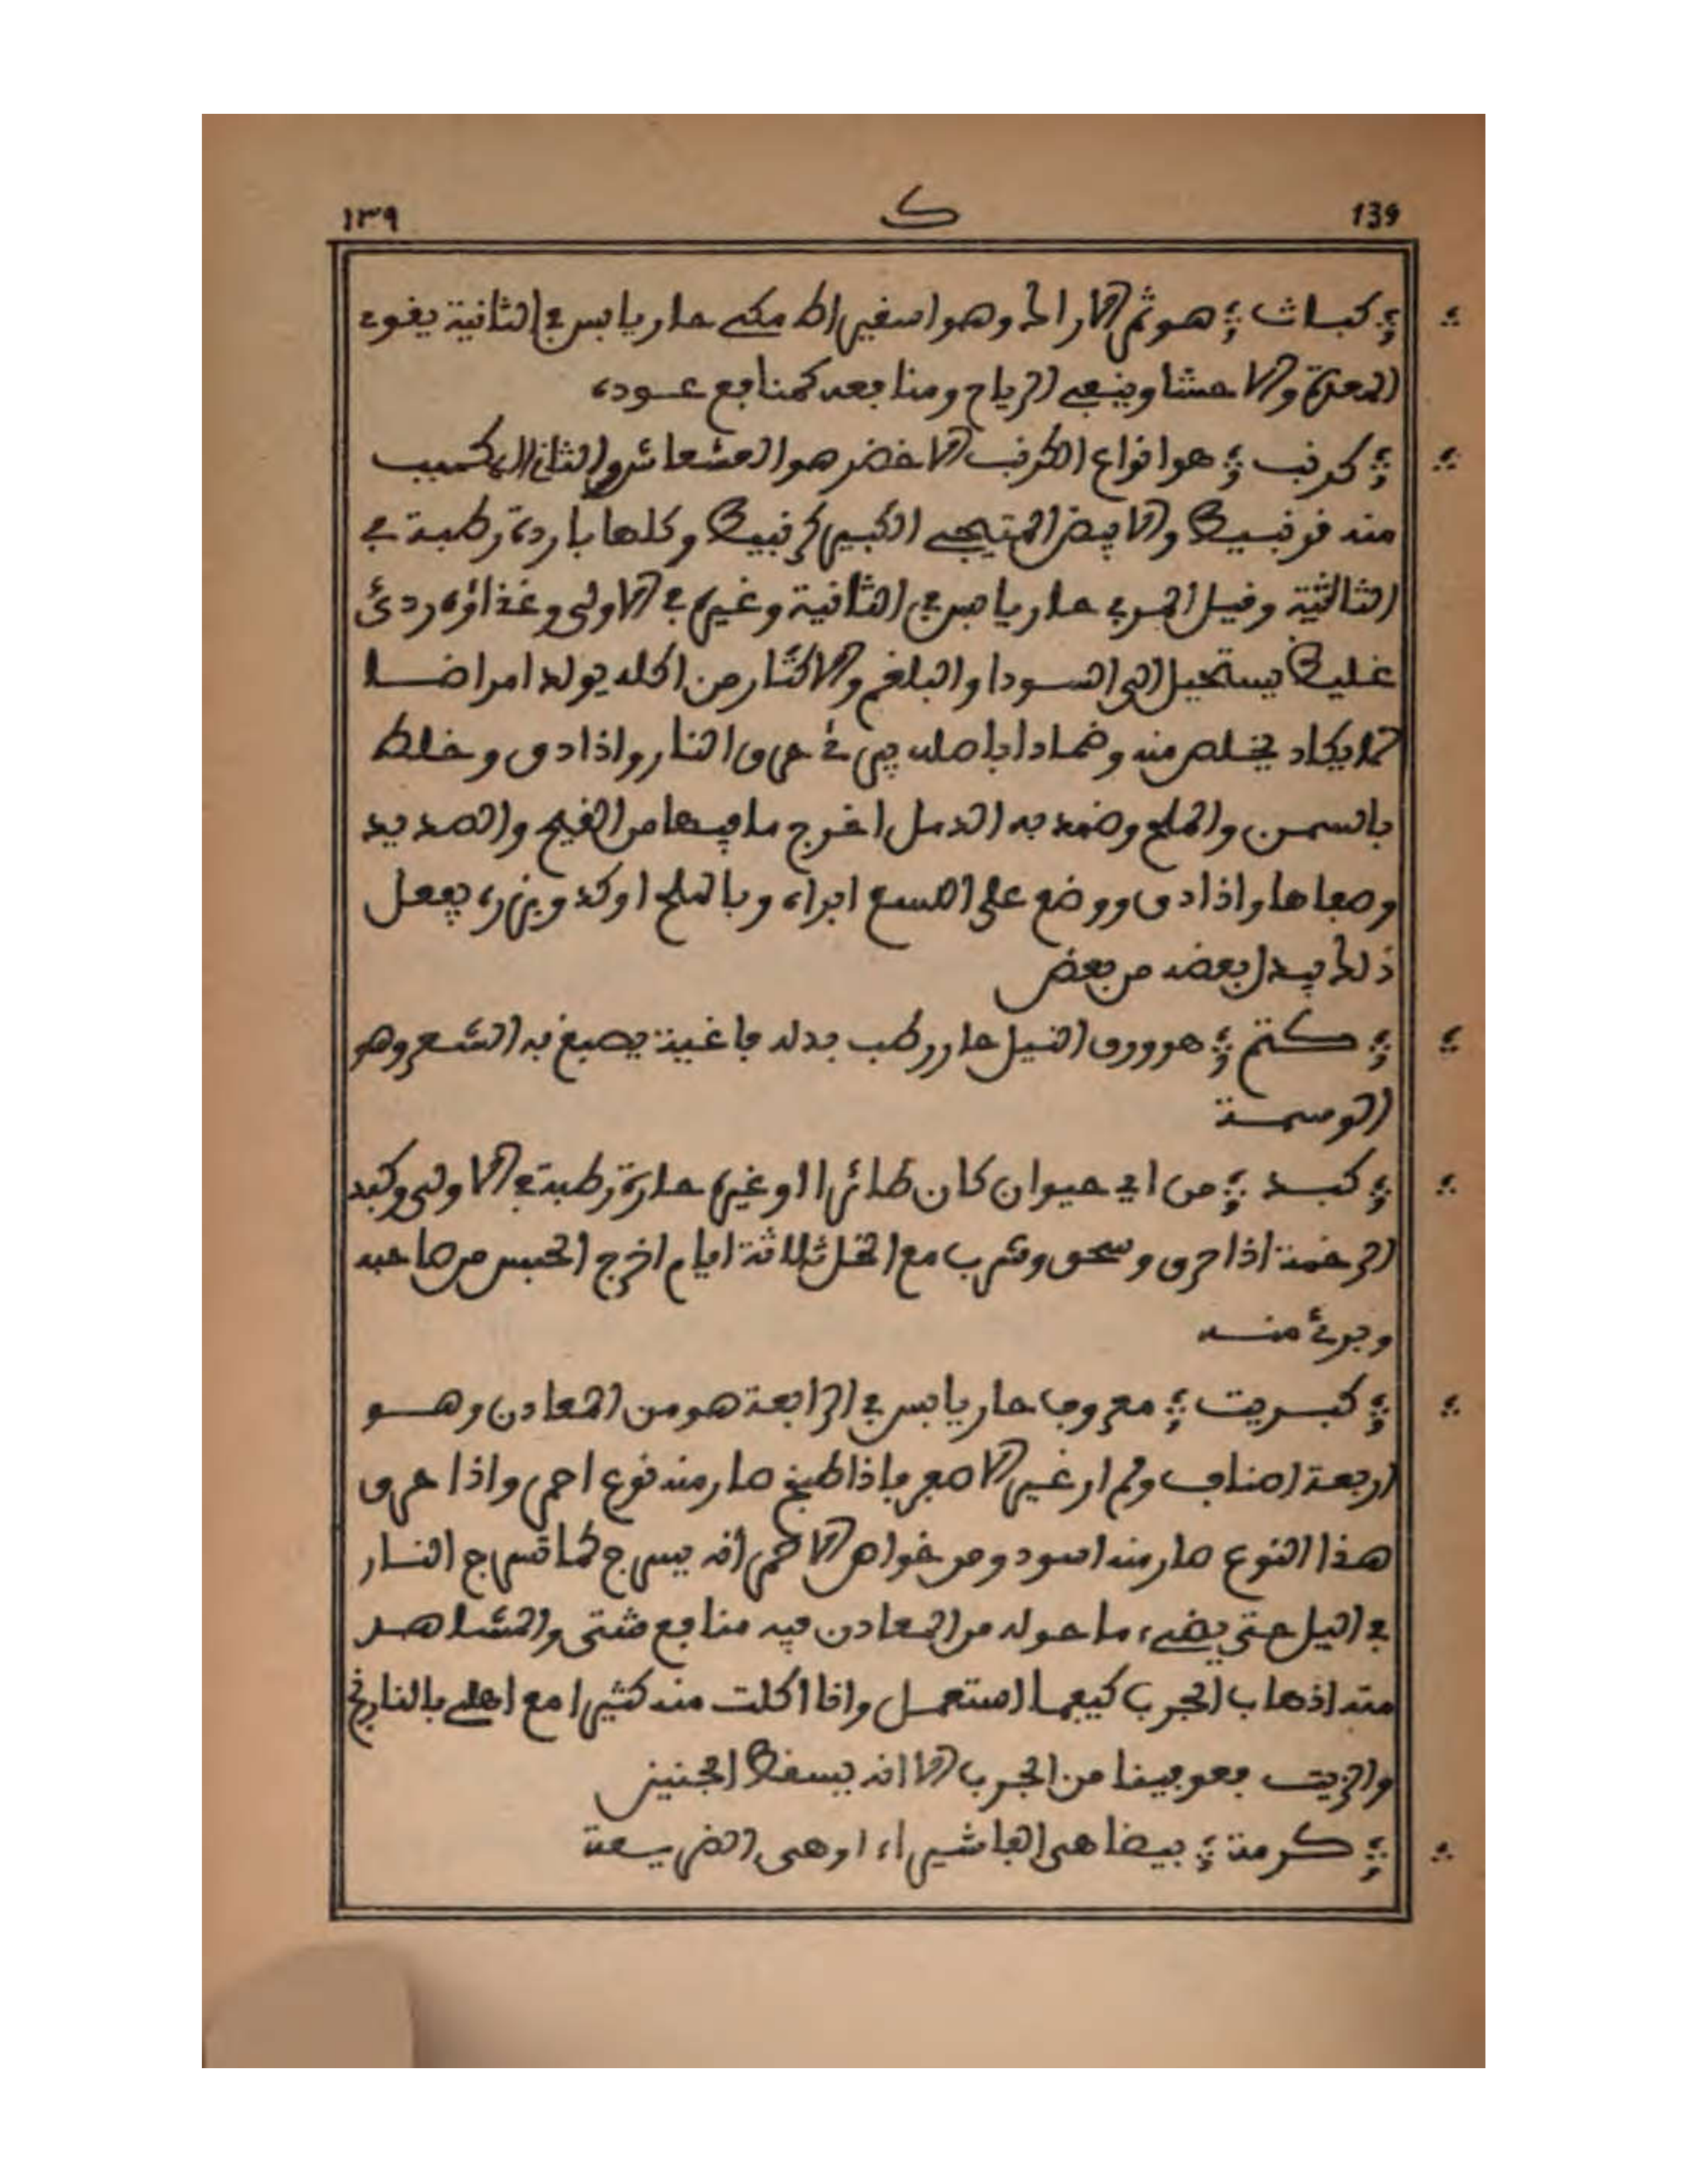 139 ك ١٣٩
كباث هو ثمر الاراك وهو اسفيراك مكي حار يابس في الثانية يقوي
المعدة والاحشا وينفي الرياح ومنافعه كمنافع عوده
كرنب هو انواع الكرنب الاخضر هو المشعاشر والثاني المكبب
منه قرنبيط والابيض الكبير كرنبيط وكلها باردة رطبة في
الثالثة وقيل البري حار يابس في الثانية وغيره في الاولى وغذاؤه ردئ
غليظ يستحيل الى السودا والبلغم والاكثار من اكله يولد امراضا
لا يكاد يخلص منه وضمادا باصله يبرئ حرق النار واذا دق وخلط
بالسمن والملح وضمد به الدمل اخرج ما فيها من القيح والصديد
وصفاها واذا دق ووضع على اللسع ابراه وبالملح اوكد وبزره يفعل
ذلك يبدل بعضه من بعض
كتم هو ورق النيل حار رطب بدله فاغية يصبغ به الشعر وهو
الوسمة
كبد من اي حيوان كان طائرا او غيره حارة رطبة في الاولى وكبد
الرخمة اذا حرق وسحق وشرب مع الخل ثلاثة ايام اخرج الحبس من صاحبه
وبرئ منه
كبريت معروف حار يابس في الرابعة هو من المعادن وهو
اربعة اصناف ولم ار غير الاصفر فاذا طبخ صار منه نوع احمر واذا حرق
هذا النوع صار منه اسود ومن خواص الاحمر انه يسرج كما تسرج النار
في اليل حتى يضيء ما حوله من المعادن فيه منافع شتى والمشاهد
منه اذهاب الجرب كيفما استعمل وانا اكلت منه كثيرا مع اهلي بالنارنج
والزيت فعوفينا من الجرب الا انه يسقط الجنين
كرمة بيضا هي الفاشيراء او هي الضريسعة